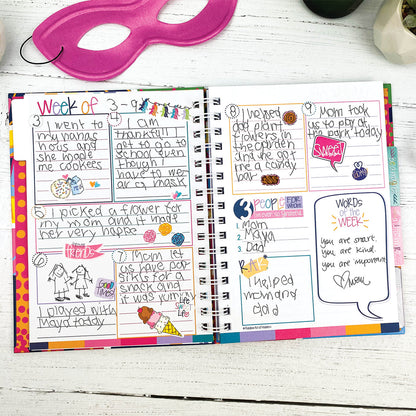 Week of 3-9
3
I went to
my nanas
hous and
she made
me cookees
4
I am
thankfull I
got to go to
school even
though I
have to we
ar a mask
5
I picked a flower for
my mom and it made
her very happe
6
Friends
I played with
Maya today
GOOD TIMES!
7
Mom let
us have pop
sicles for a
snack and
it was yum
LIFE'S SWEET LIFE
8
I helped
dad plant
flowers in
the garden
and he got
me a candy
bar
9
Mom took
us to play at
the park today
SWEET!
3 PEOPLE
1. Mom
2. Maya
3. Dad
I helped
mom and
dad
WORDS
of the
WEEK
you are smart.
you are kind.
you are important.